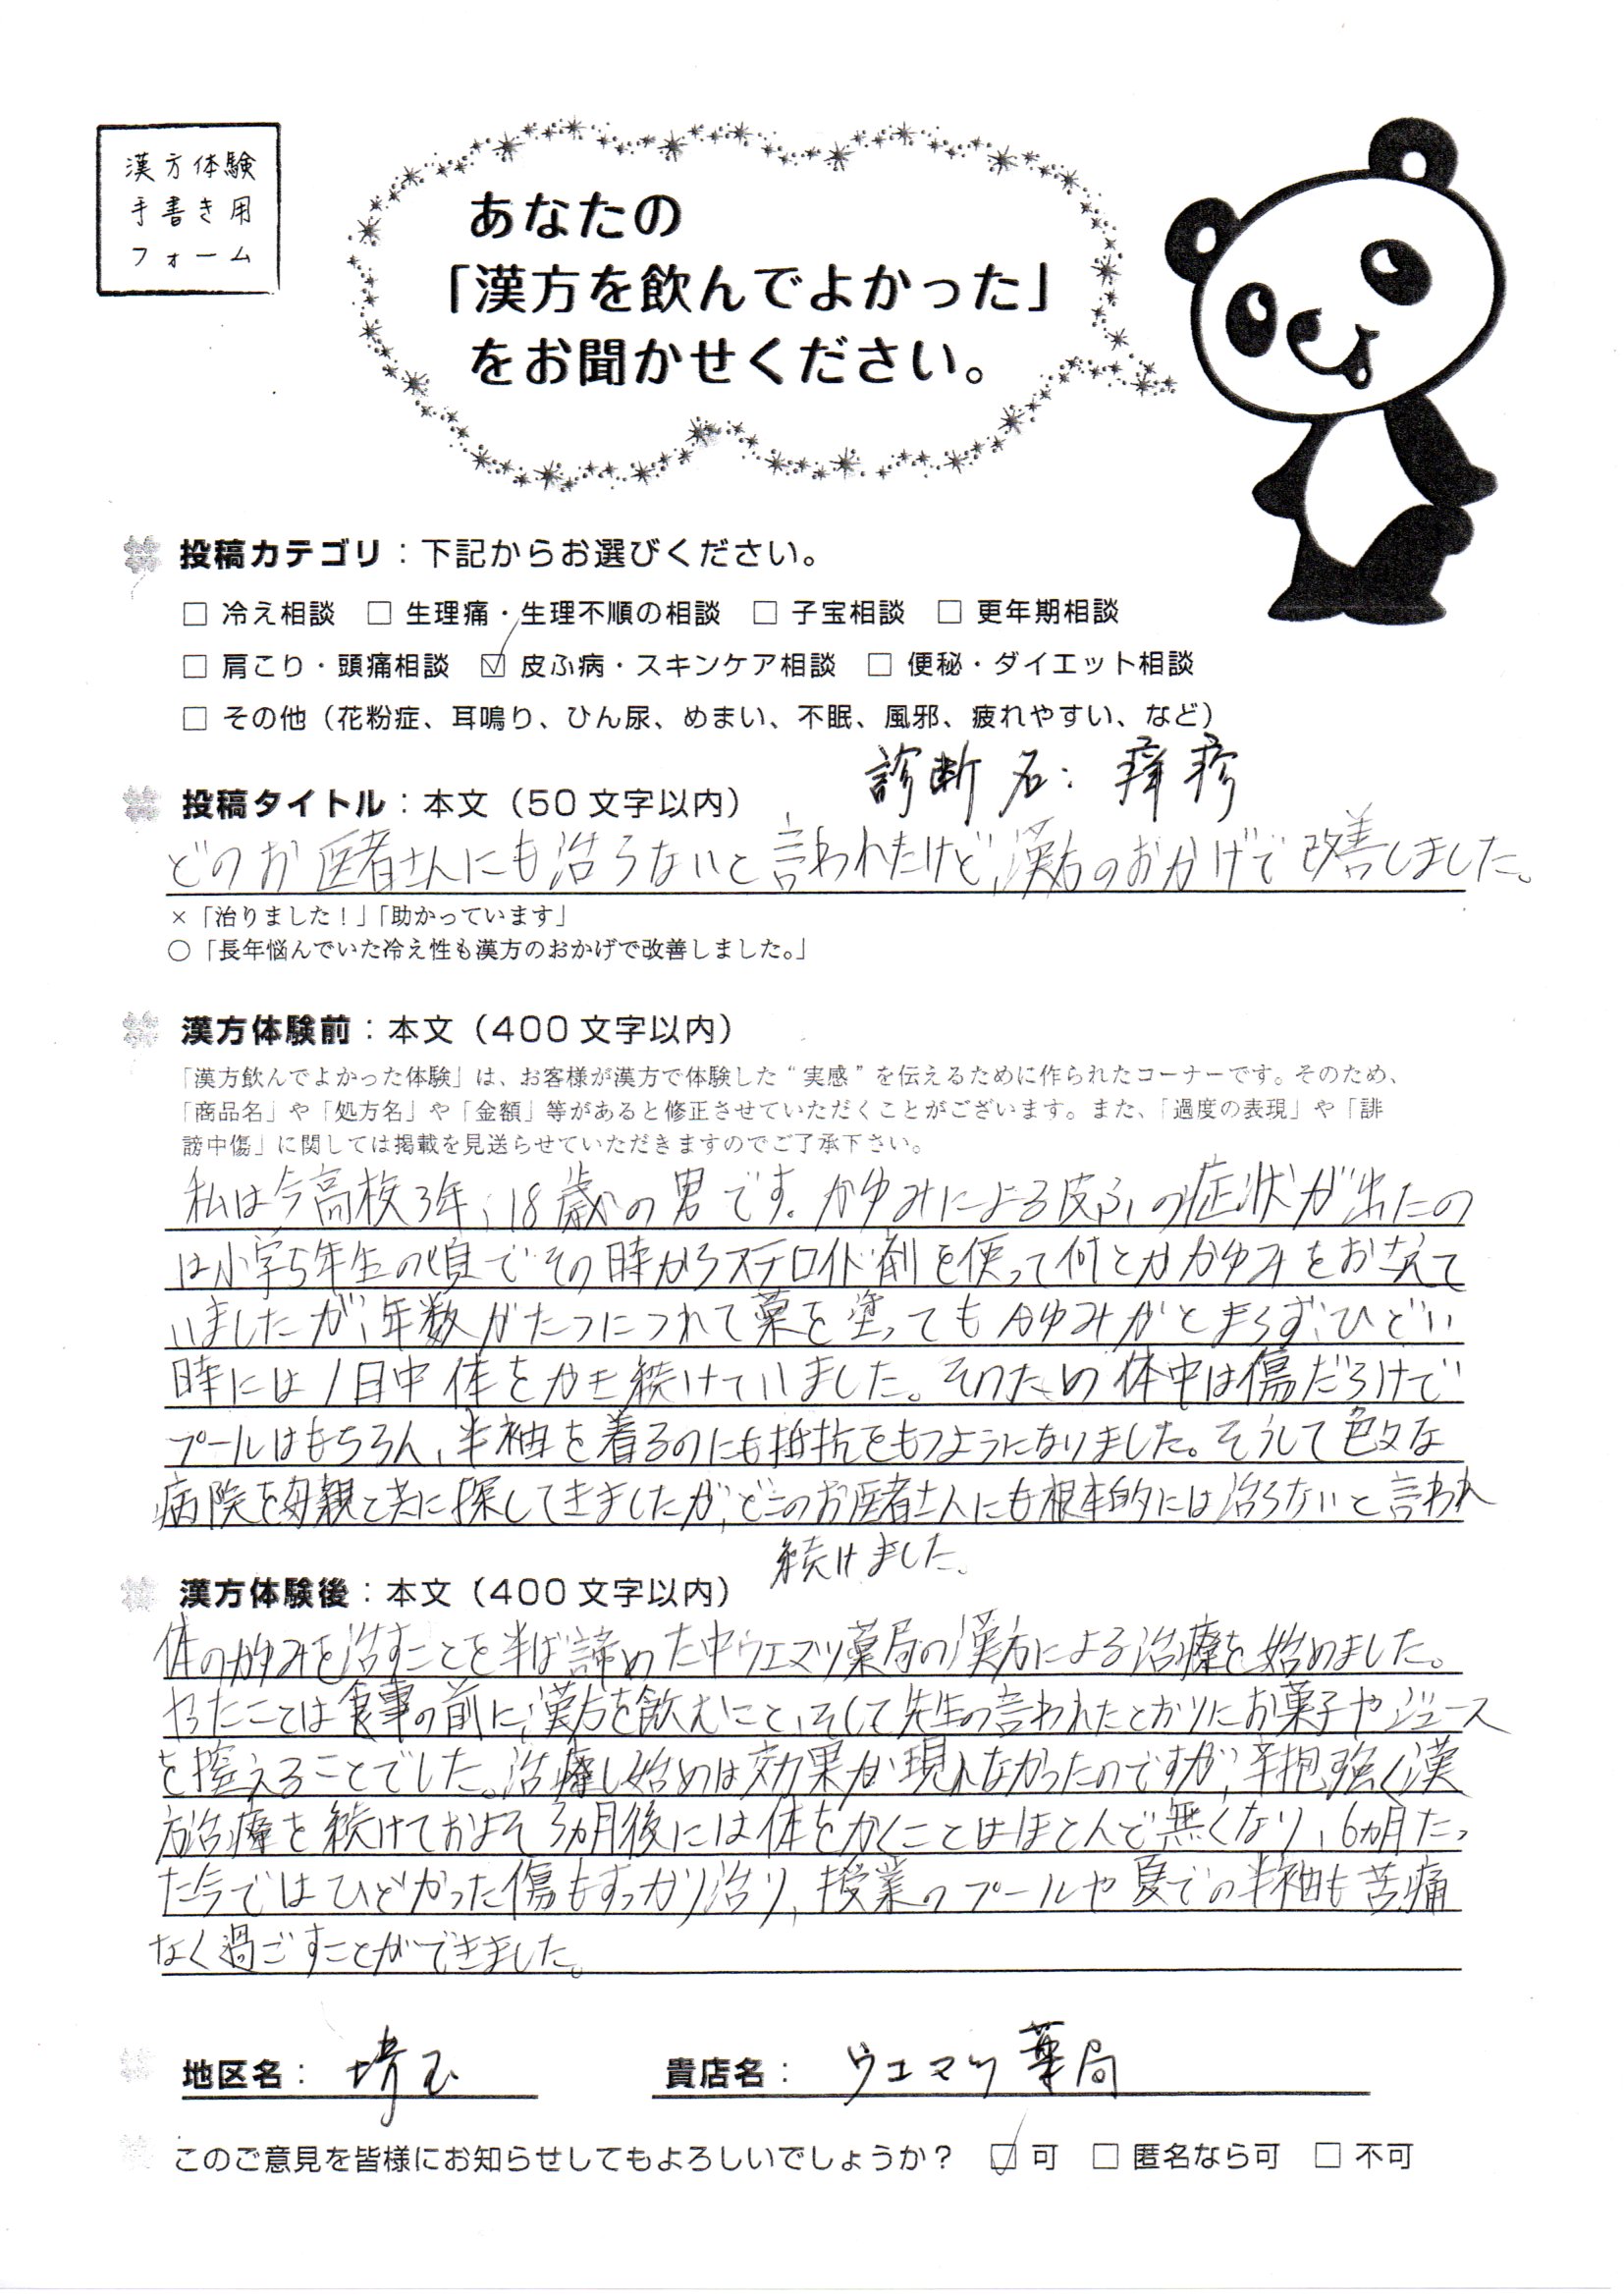 漢方体験
手書き用
フォーム
あなたの
「漢方を飲んでよかった」
をお聞かせください。
投稿カテゴリ：下記からお選びください。
□ 冷え相談 □ 生理痛・生理不順の相談 □ 子宝相談 □ 更年期相談
□ 肩こり・頭痛相談 ☑ 皮ふ病・スキンケア相談 □ 便秘・ダイエット相談
□ その他（花粉症、耳鳴り、ひん尿、めまい、不眠、風邪、疲れやすい、など）
診断名：痒疹
投稿タイトル：本文（50文字以内）
どのお医者さんにも治らないと言われたけど、漢方のおかげで改善しました。
×「治りました！」「助かっています」
○「長年悩んでいた冷え性も漢方のおかげで改善しました。」
漢方体験前：本文（400文字以内）
「漢方飲んでよかった体験」は、お客様が漢方で体験した“実感”を伝えるために作られたコーナーです。そのため、
「商品名」や「処方名」や「金額」等があると修正させていただくことがございます。また、「過度の表現」や「誹
謗中傷」に関しては掲載を見送らせていただきますのでご了承下さい。
私は今高校3年、18歳の男です。かゆみによる皮ふの症状が出たの
は小学5年生の頃でその時からステロイド剤を使って何とかかゆみをおさえて
いましたが、年数がたつにつれて薬を塗ってもかゆみがとまらず、ひどい
時には1日中体をかき続けていました。そのため体中は傷だらけで
プールはもちろん、半袖を着るのにも抵抗をもつようになりました。そうして色々な
病院を母親と共に探してきましたが、どこのお医者さんにも根本的には治らないと言われ
続けました。
漢方体験後：本文（400文字以内）
体のかゆみを治すことを半ば諦めた中ウエマツ薬局の漢方による治療を始めました。
やったことは食事の前に漢方を飲むこと、そして先生の言われたとおりにお菓子やジュース
を控えることでした。治療し始めは効果が現れなかったのですが、辛抱強く漢
方治療を続けておよそ3ヵ月後には体をかくことはほとんど無くなり、6ヵ月たっ
た今ではひどかった傷もすっかり治り、授業のプールや夏での半袖も苦痛
なく過ごすことができました。
地区名：埼玉 貴店名：ウエマツ薬局
このご意見を皆様にお知らせしてもよろしいでしょうか？ ☑ 可 □ 匿名なら可 □ 不可